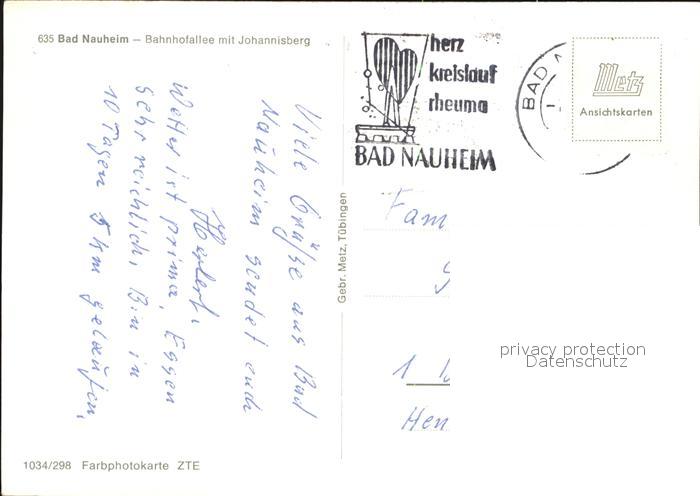 635 Bad Nauheim – Bahnhofallee mit Johannisberg
herz
kreislauf
rheuma
BAD NAUHEIM
BAD
Metz
Ansichtskarten
Viele Grüße aus Bad
Nauheim sendet euch
Herbert.
Wetter ist prima, Essen
sehr reichlich, Bin in
10 Tagen 5 km gelaufen.
Gebr. Metz, Tübingen
Fam
1
Hen
privacy protection
Datenschutz
1034/298 Farbphotokarte ZTE